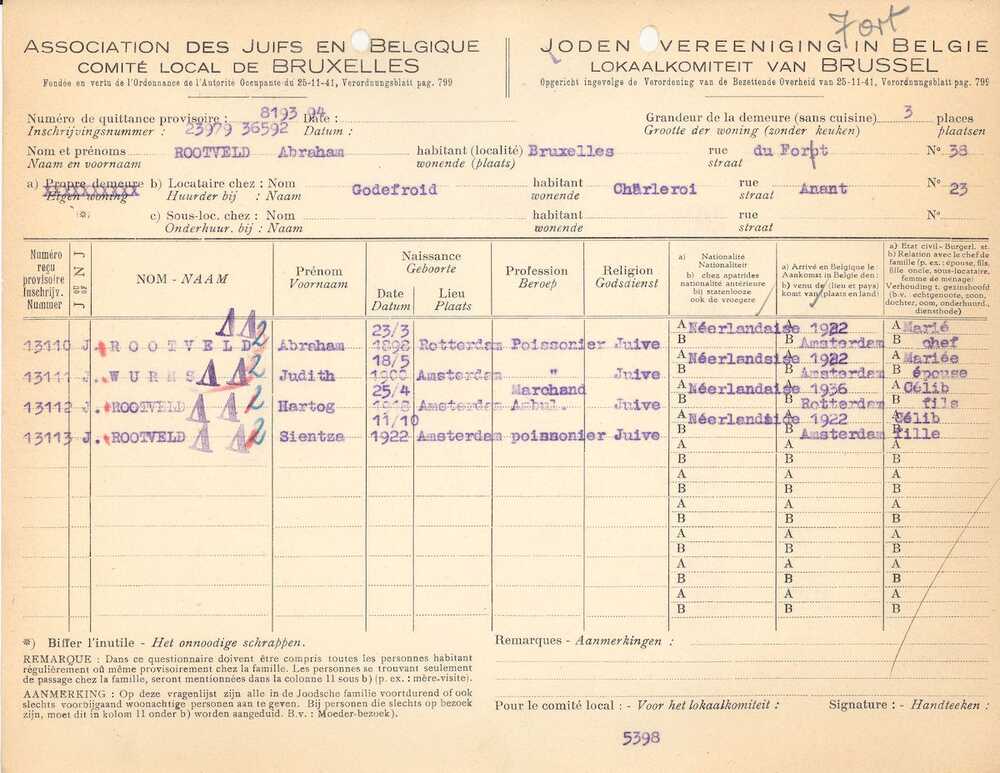 Fort
ASSOCIATION DES JUIFS EN BELGIQUE
COMITÉ LOCAL DE BRUXELLES
Fondée en vertu de l'Ordonnance de l'Autorité Occupante du 25-11-41, Verordnungsblatt pag. 799
JODEN VEREENIGING IN BELGIE
LOKAALKOMITEIT VAN BRUSSEL
Opgericht ingevolge de Verordening van de Bezettende Overheid van 25-11-41, Verordnungsblatt pag. 799
Numéro de quittance provisoire : 8193 04 Date :
Inschrijvingsnummer : 23979 36592 Datum :
Grandeur de la demeure (sans cuisine) 3 places
Grootte der woning (zonder keuken) plaatsen
Nom et prénoms ROOTVELD Abraham habitant (localité) Bruxelles rue du Forpt N° 38
Naam en voornaam wonende (plaats) straat
a) Propre demeure b) Locataire chez : Nom Godefroid habitant Chârleroi rue Anant N° 23
Eigen woning Huurder bij : Naam wonende straat
*) c) Sous-loc. chez : Nom habitant rue N°
Onderhuur. bij : Naam wonende straat
Numéro reçu provisoire Inschrijv. Nummer
J ou N J of N
NOM - NAAM
Prénom Voornaam
Naissance Geboorte
Date Datum
Lieu Plaats
Profession Beroep
Religion Godsdienst
a) Nationalité Nationaliteit
b) chez apatrides nationalité antérieure bij statenlooze ook de vroegere
a) Arrivé en Belgique le: Aankomst in België den:
b) venu de (lieu et pays) komt van (plaats en land)
a) Etat civil - Burgerl. st.
b) Relation avec le chef de famille (p. ex.: épouse, fils, fille oncle, sous-locataire, femme de ménage) Verhouding t. gezinshoofd (b.v. : echtgenoote, zoon, dochter, oom, onderhuurd., dienstbode)
AA2
23/3 A Néerlandaise A 1922 A Marié
13110 J. ROOTVELD Abraham 1898 Rotterdam Poissonier Juive B B Amsterdam B chef
18/5 A Néerlandaise A 1922 A Mariée
13111 J. WURMS AA2 Judith 1900 Amsterdam " Juive B B Amsterdam B épouse
25/4 Marchand A Néerlandaise A 1936 A Célib
13112 J. ROOTVELD AA2 Hartog Amsterdam Ambul. Juive B B Rotterdam B fils
11/10 A Néerlandaise A 1922 A Célib
13113 J. ROOTVELD AA2 Sientza 1922 Amsterdam poissonier Juive B B Amsterdam B fille
A A A
B B B
A A A
B B B
A A A
B B B
A A A
B B B
A A A
B B B
A A A
B B B
*) Biffer l'inutile - Het onnoodige schrappen.
REMARQUE : Dans ce questionnaire doivent être compris toutes les personnes habitant
régulièrement où même provisoirement chez la famille. Les personnes se trouvant seulement
de passage chez la famille, seront mentionnées dans la colonne 11 sous b) (p. ex. : mère-visite).
AANMERKING : Op deze vragenlijst zijn alle in de Joodsche familie voortdurend of ook
slechts voorbijgaand woonachtige personen aan te geven. Bij personen die slechts op bezoek
zijn, moet dit in kolom 11 onder b) worden aangeduid. B.v. : Moeder-bezoek).
Remarques - Aanmerkingen :
Pour le comité local : - Voor het lokaalkomiteit : Signature : - Handteeken :
5398